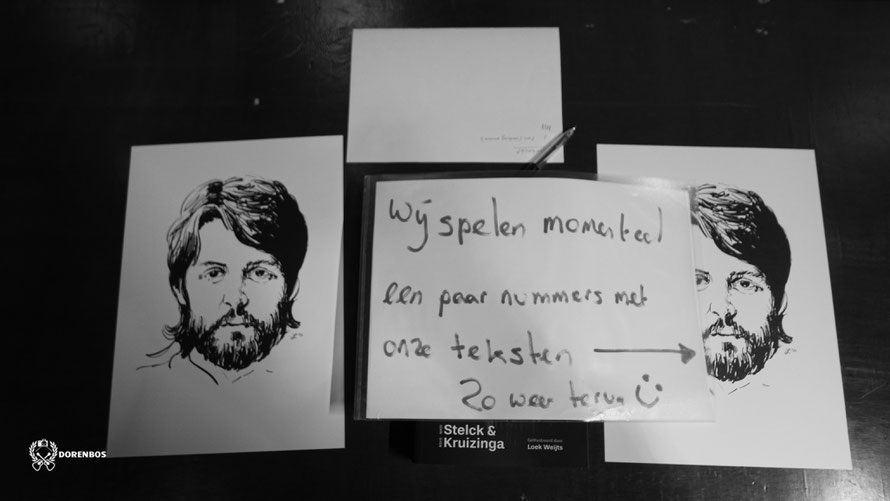 Wij spelen momenteel
een paar nummers met
onze teksten
Zo weer terug
Stelck &
Kruizinga
Loek Weijts
DORENBOS